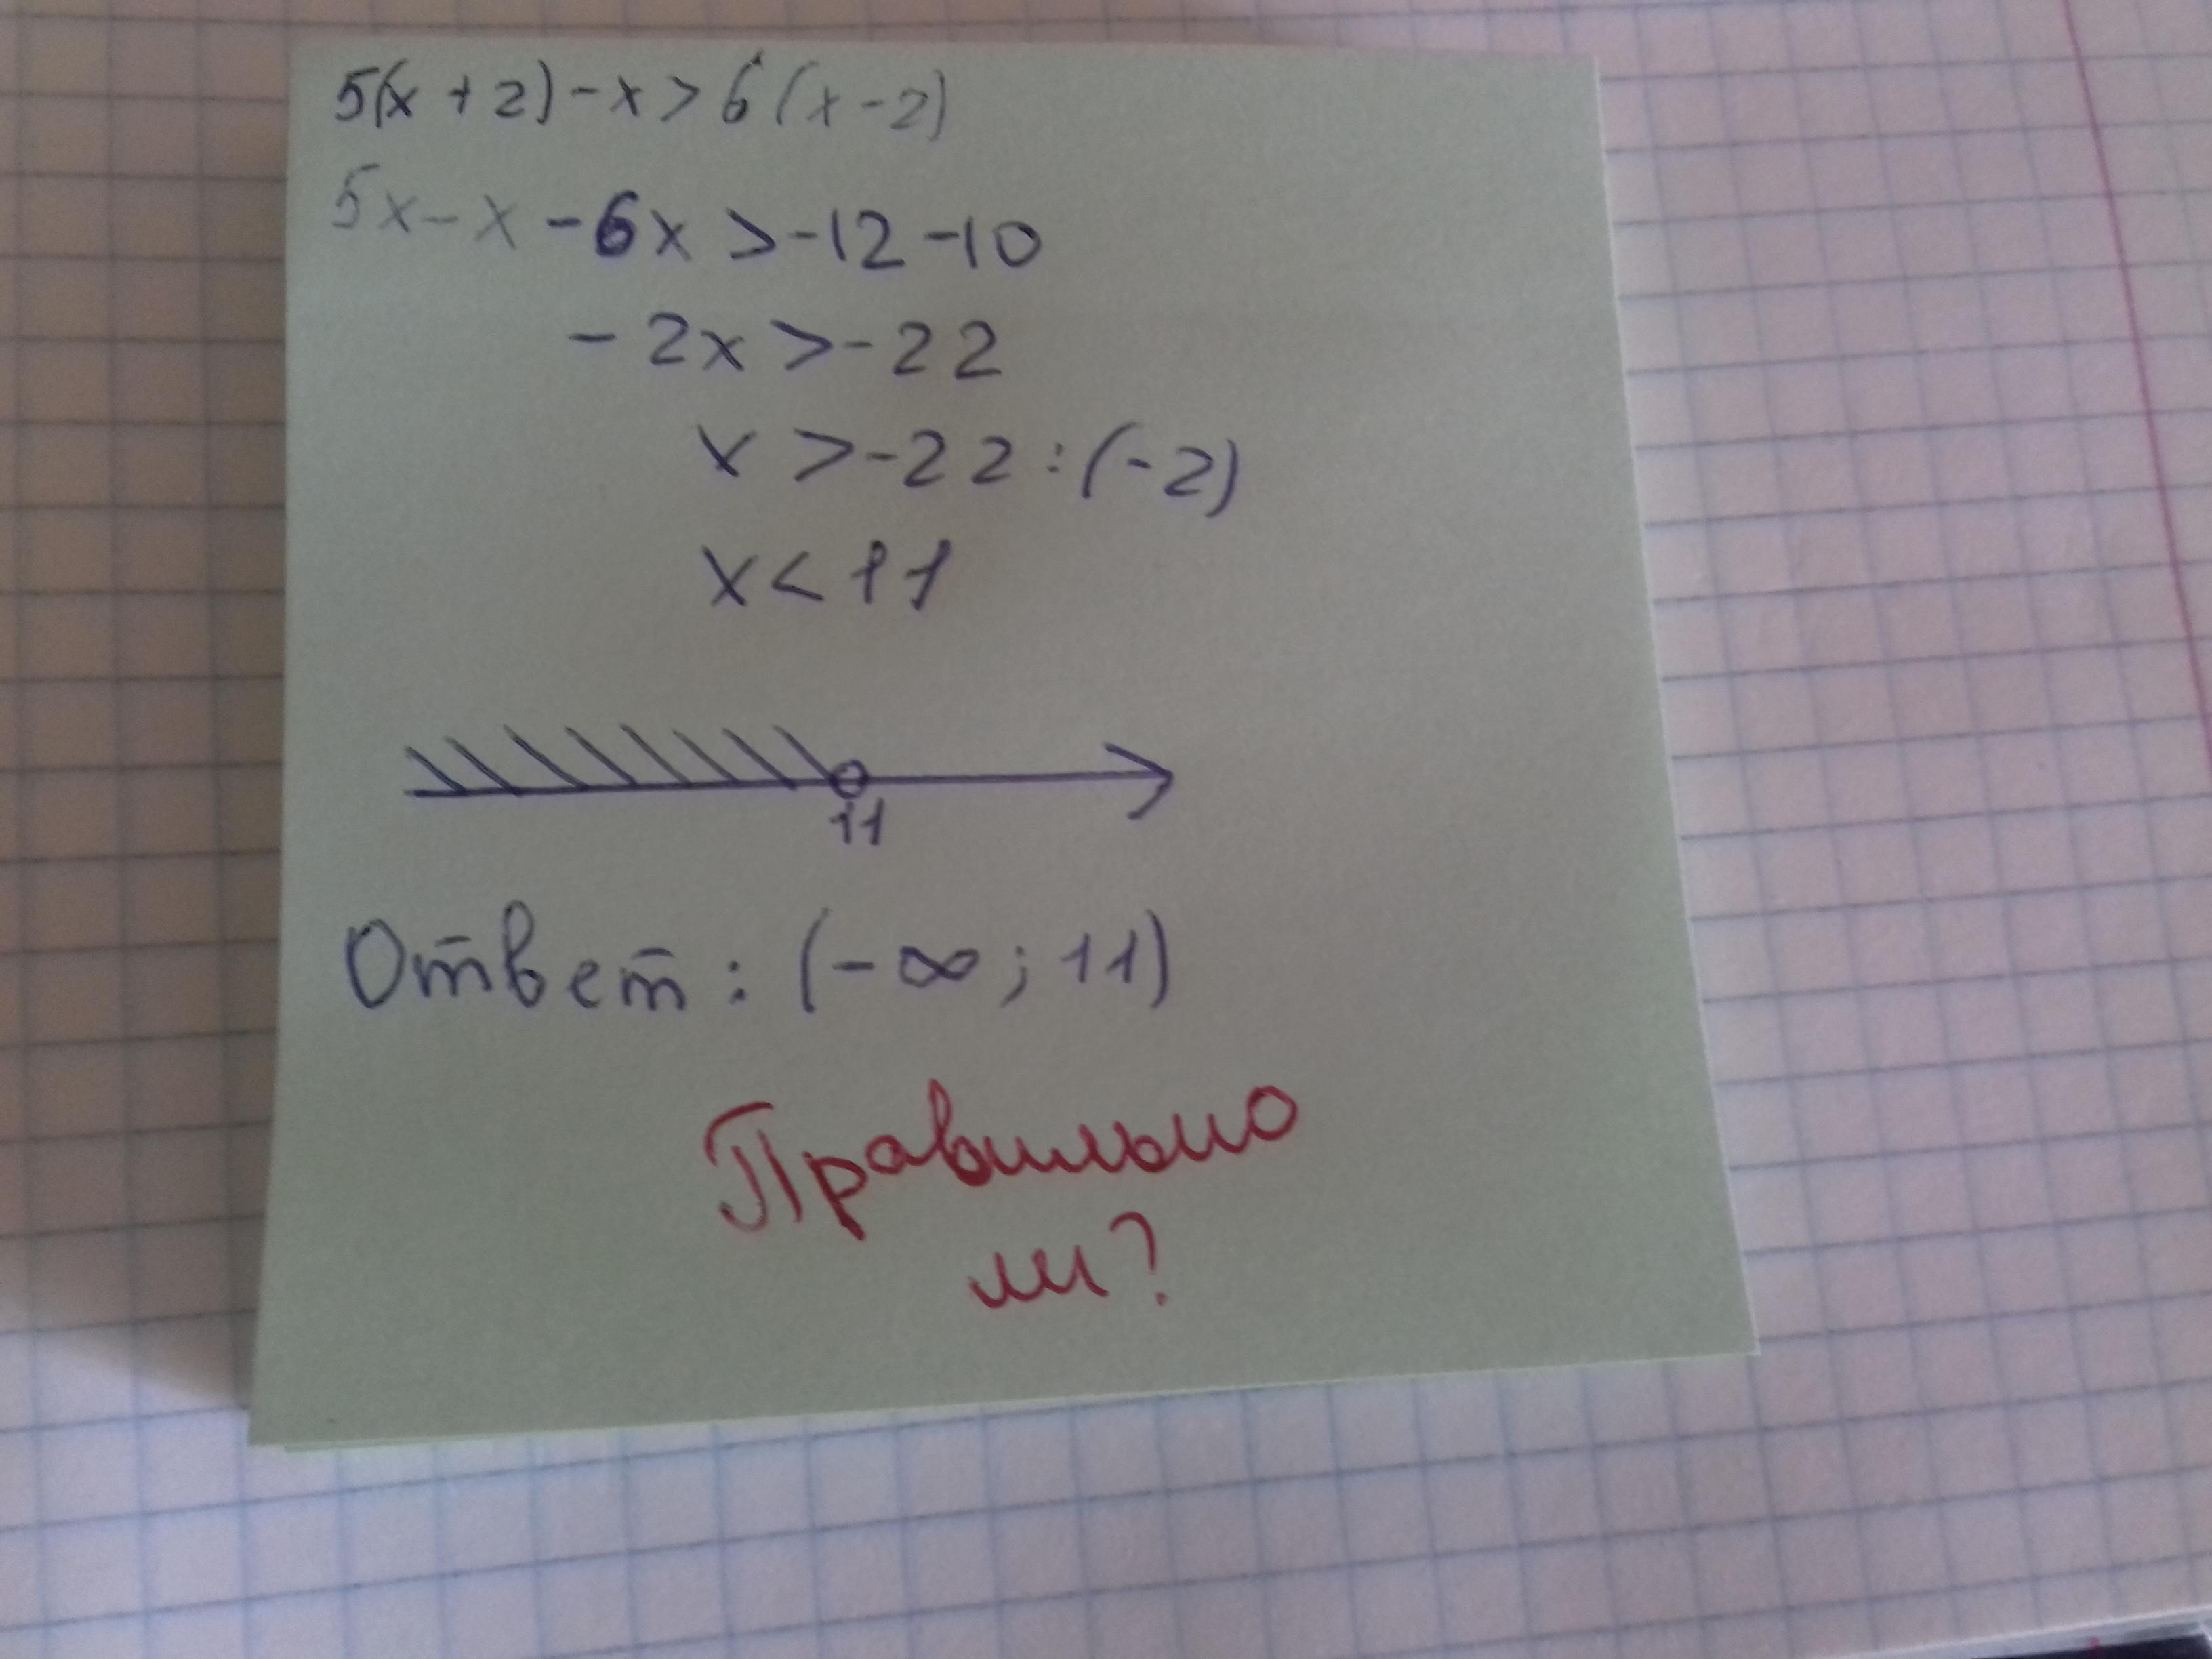 5(x + 2) - x > 6(x - 2)
5x - x - 6x > -12 - 10
- 2x > -22
x > -22 : (-2)
x < 11
11
Ответ: (-∞; 11)
Правильно
ли?